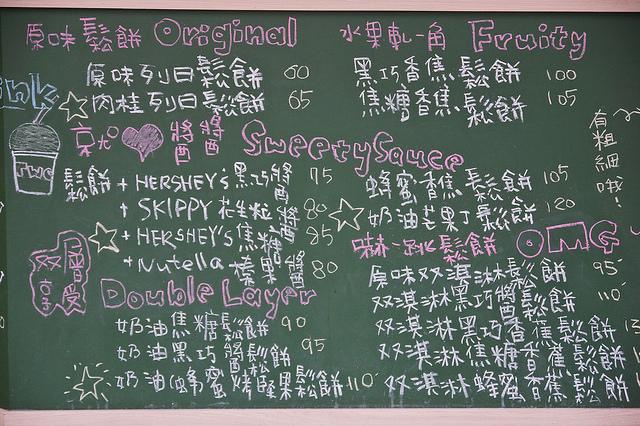 原味鬆餅 Original
原味列日鬆餅 60
肉桂列日鬆餅 65
醬醬 Sweety Sauce
鬆餅 + HERSHEY'S 黑巧醬 75
+ SKIPPY 花生粒醬 80
+ HERSHEY'S 焦糖醬 85
+ Nutella 榛果醬 80
双層享受
Double Layer
奶油焦糖鬆餅 90
奶油黑巧醬鬆餅 95
奶油蜂蜜烤堅果鬆餅 110
水果軋一角 Fruity
黑巧香蕉鬆餅 100
焦糖香蕉鬆餅 105
蜂蜜香蕉鬆餅 105
奶油芒果丁鬆餅 120
有粗細哦!
嚇一跳鬆餅 OMG
原味双淇淋鬆餅 95
双淇淋黑巧醬鬆餅 110
双淇淋黑巧香蕉鬆餅
双淇淋焦糖香蕉鬆餅
双淇淋蜂蜜香蕉鬆餅
TWG